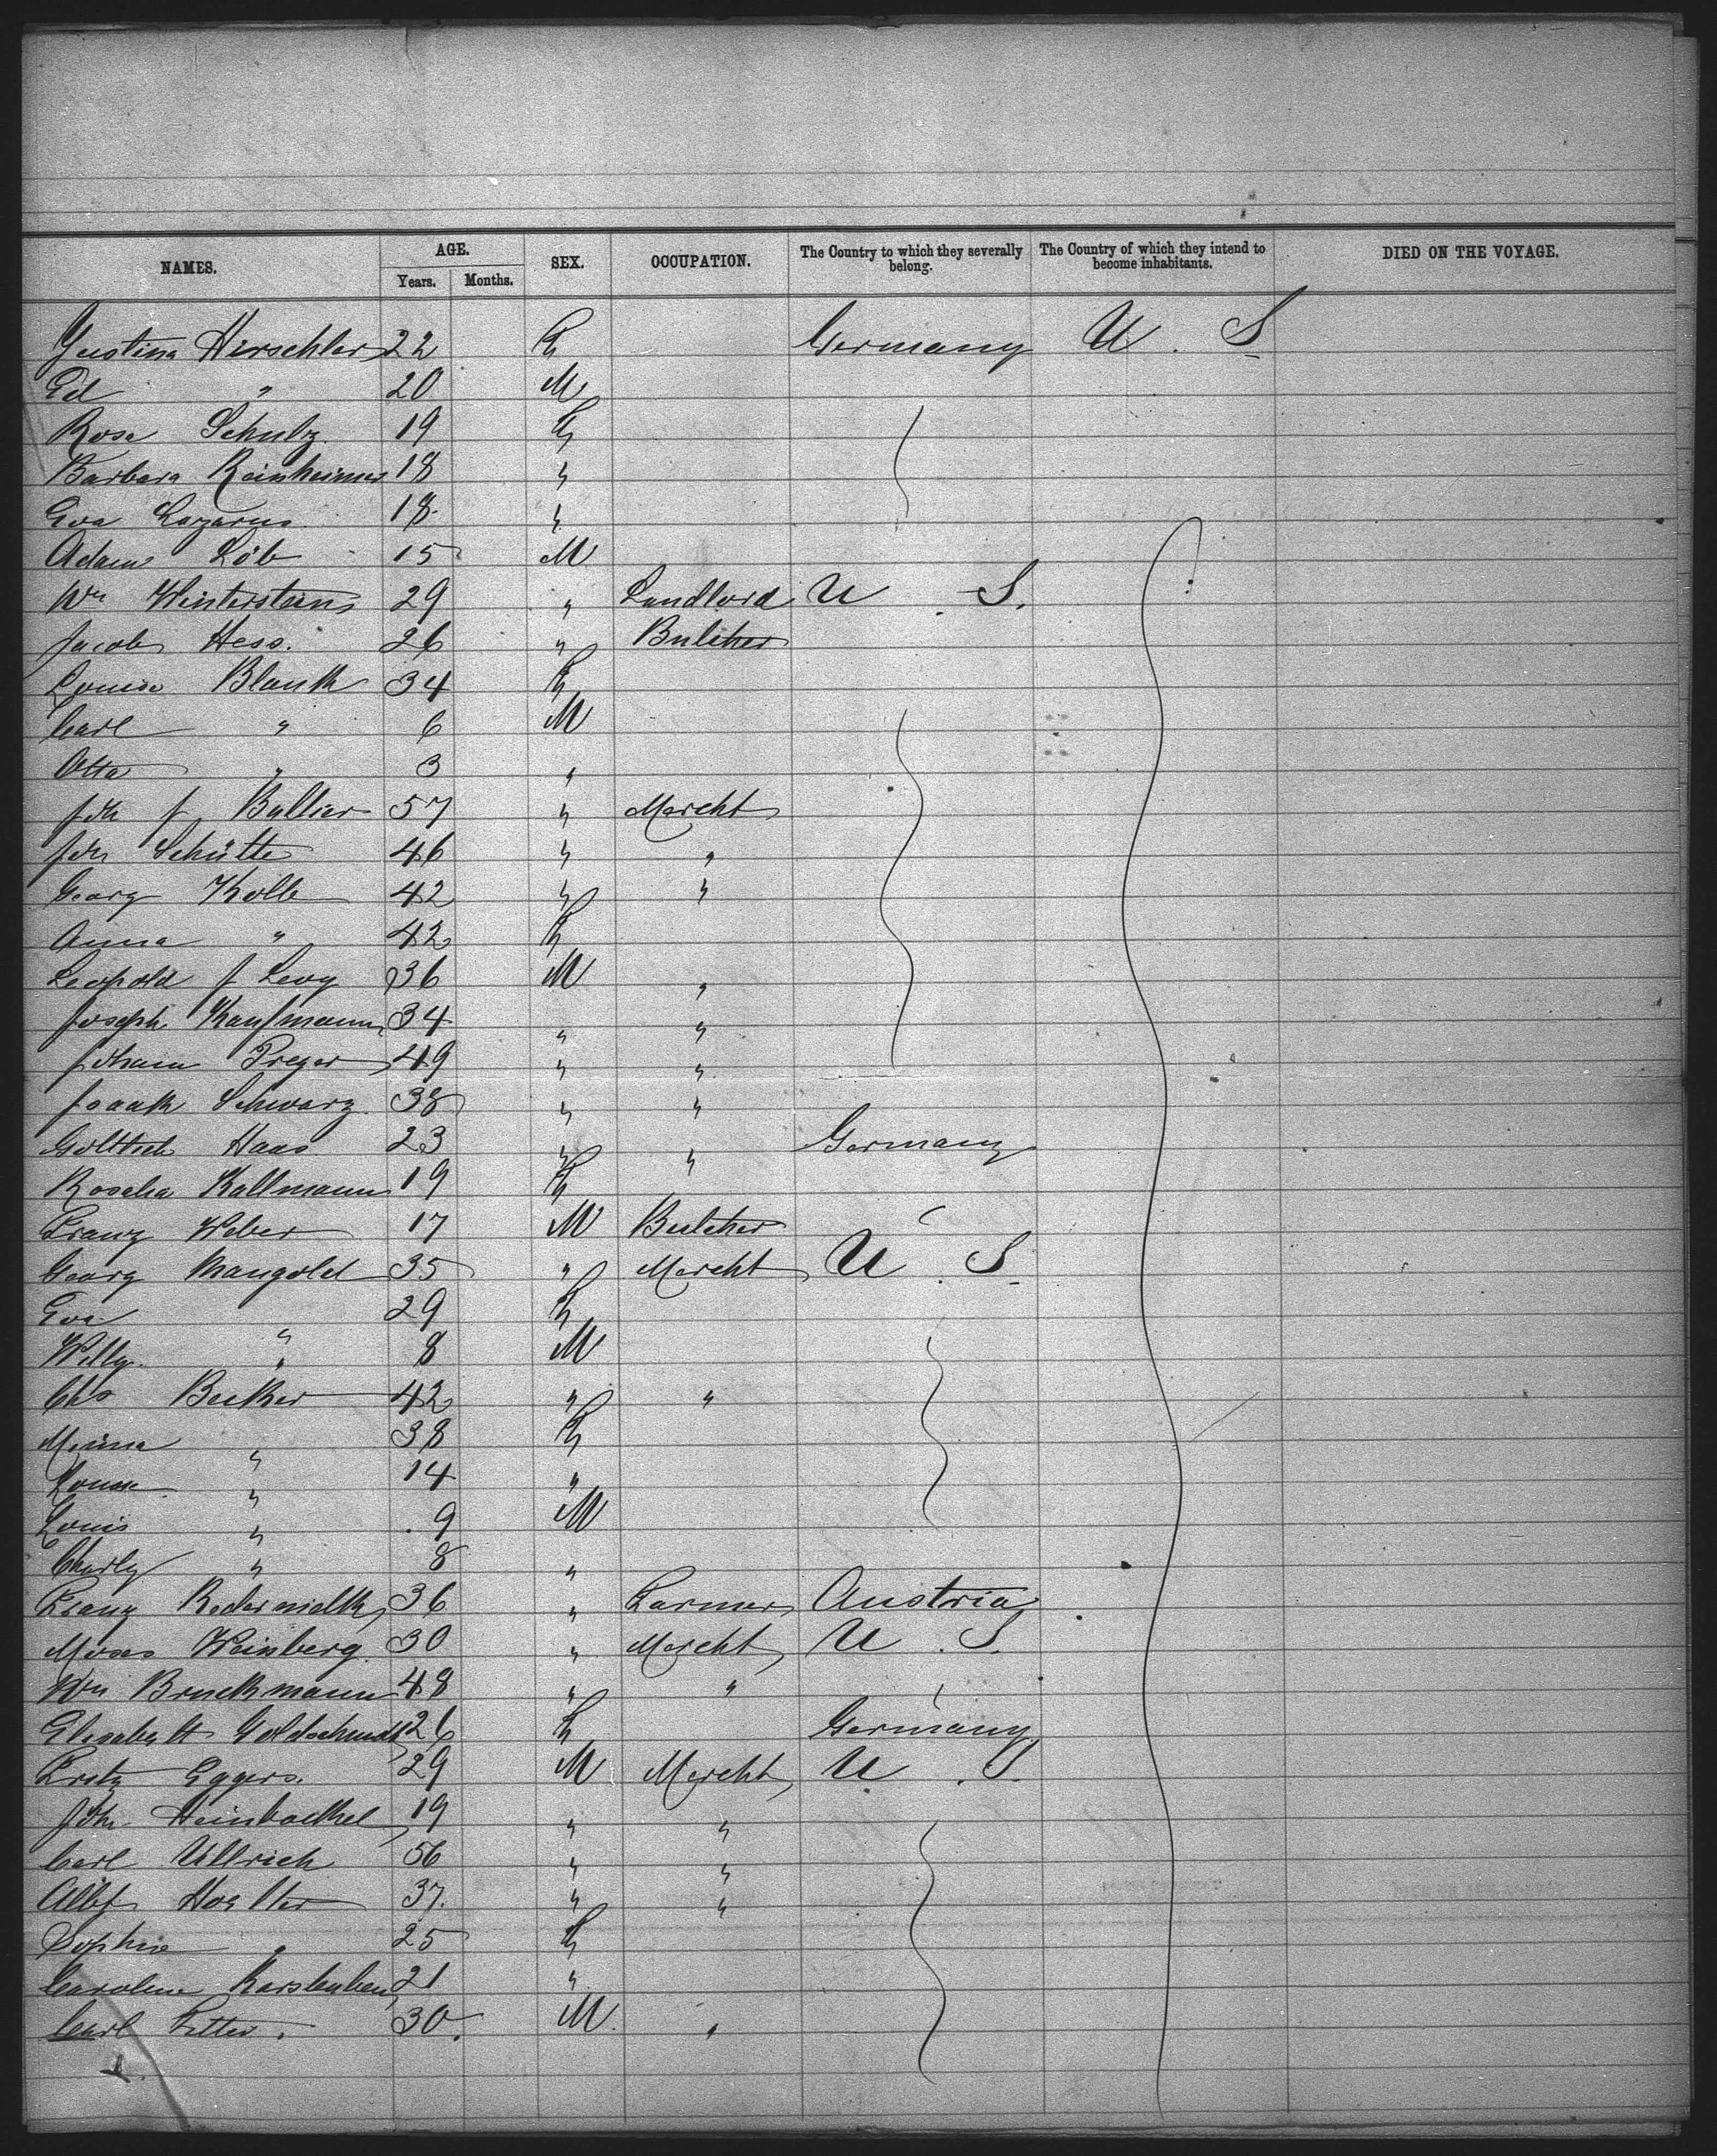 NAMES. AGE. SEX. OCCUPATION. The Country to which they severally belong. The Country of which they intend to become inhabitants. DIED ON THE VOYAGE.
Years. Months.
Justina Hirschler 22 F Germany U. S.
Ed " 20 M
Rosa Schulz 19 F
Barbara Reinheimer 18 "
Eva Lazarus 18 "
Adam Löb 15 M
Wm Winterstein 29 " Landlord U. S.
Jacob Hess. 26 " Butcher
Louise Blank 34 F
Carl " 6 M
Otto " 3 "
Joh J. Bullier 57 " Mercht
Joh Schütte 46 " "
Georg Kolle 42 " "
Anna " 42 F
Leopold J Levy 36 M "
Joseph Kaufmann 34 " "
Johann Preger 49 " "
Isaak Schwarz 38 " "
Gottlieb Haas 23 " " Germany
Rosalia Kallmann 19 F
Franz Weber 17 M Butcher "
Georg Mangold 35 " Mercht U. S.
Eva " 29 F
Willy " 8 M
Chs Becker 42 " "
Minna " 38 F
Louise " 14 "
Louis " 9 M
Charly " 8 "
Franz 36 " Farmer Austria
Moses Weinberg 30 " Mercht U. S.
Wm Bruckmann 48 " " "
Elisabeth Goldschmidt 26 F Germany
Fritz Eggers. 29 M Mercht U. S.
Joh Heinbockel 19 " "
Carl Ullrich 56 " "
Albt 37 " "
Sophie " 25 F
Caroline 21 "
Carl 30. M "